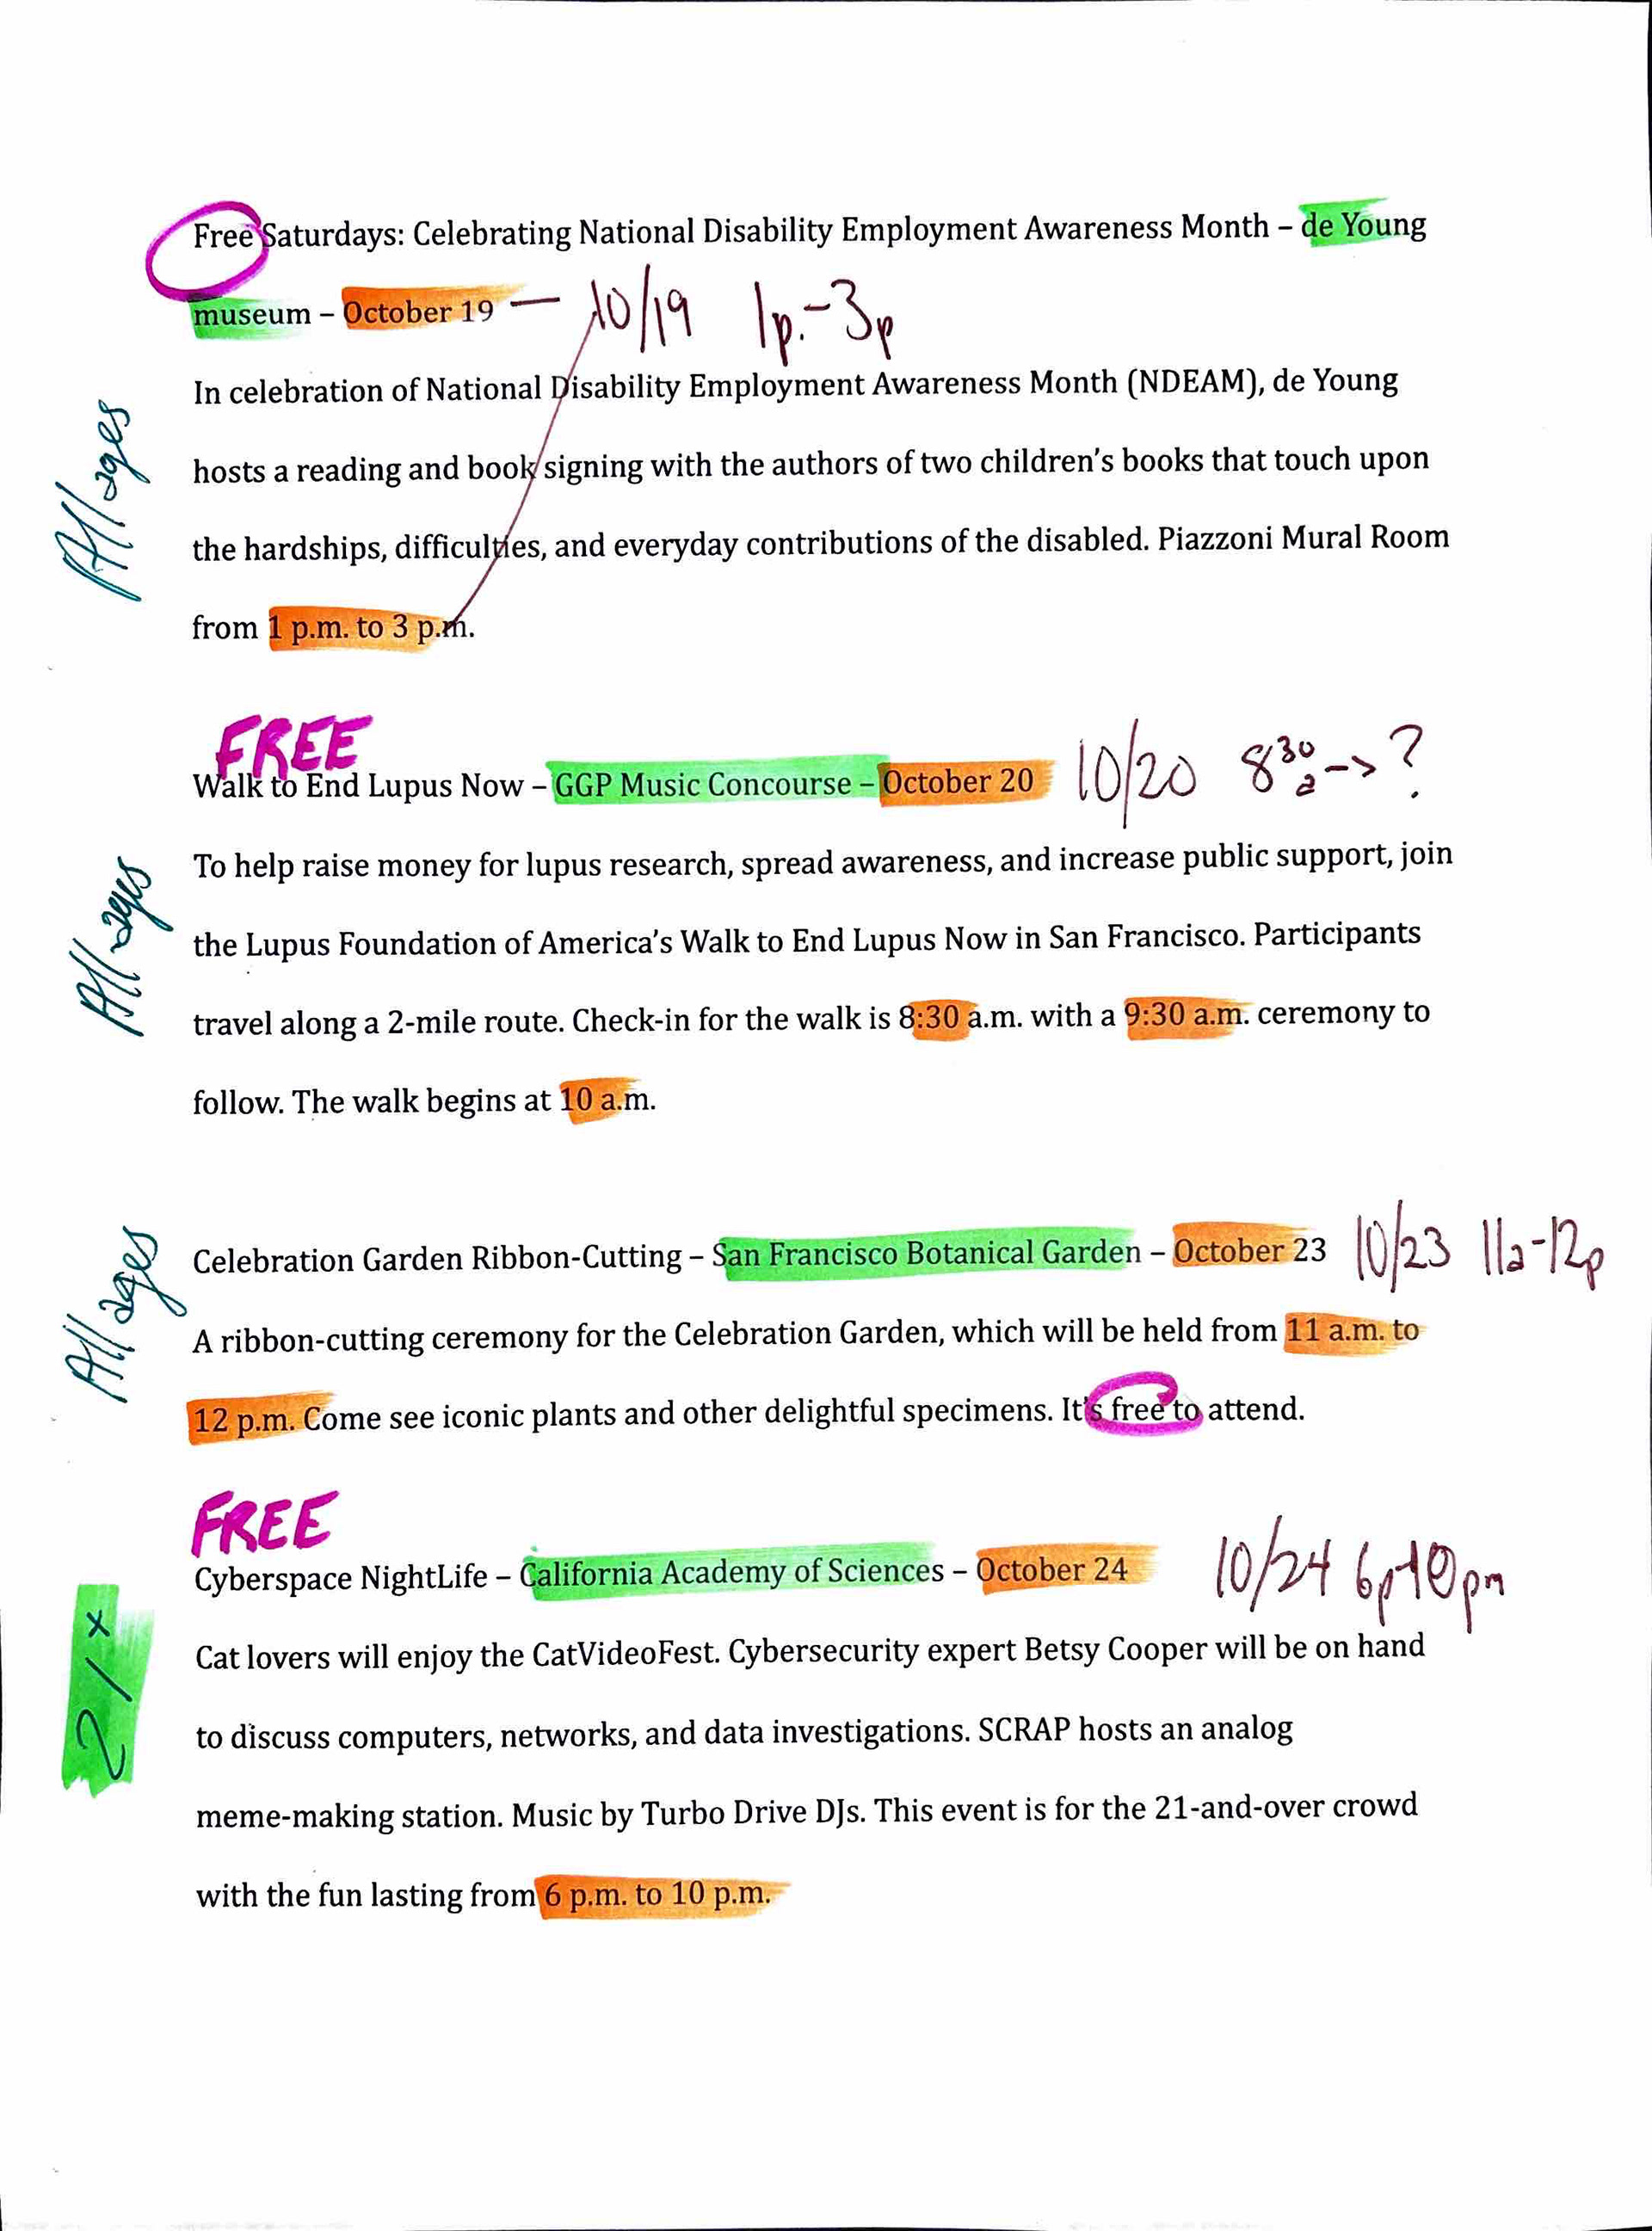 Free Saturdays: Celebrating National Disability Employment Awareness Month – de Young
museum – October 19 — 10/19 1p.-3p
In celebration of National Disability Employment Awareness Month (NDEAM), de Young
hosts a reading and book signing with the authors of two children's books that touch upon
the hardships, difficulties, and everyday contributions of the disabled. Piazzoni Mural Room
from 1 p.m. to 3 p.m.
All ages
FREE
Walk to End Lupus Now – GGP Music Concourse – October 20 10/20 8³⁰a -> ?
To help raise money for lupus research, spread awareness, and increase public support, join
the Lupus Foundation of America's Walk to End Lupus Now in San Francisco. Participants
travel along a 2-mile route. Check-in for the walk is 8:30 a.m. with a 9:30 a.m. ceremony to
follow. The walk begins at 10 a.m.
All ages
Celebration Garden Ribbon-Cutting – San Francisco Botanical Garden – October 23 10/23 11a-12p
A ribbon-cutting ceremony for the Celebration Garden, which will be held from 11 a.m. to
12 p.m. Come see iconic plants and other delightful specimens. It's free to attend.
All ages
FREE
Cyberspace NightLife – California Academy of Sciences – October 24 10/24 6p-10pm
Cat lovers will enjoy the CatVideoFest. Cybersecurity expert Betsy Cooper will be on hand
to discuss computers, networks, and data investigations. SCRAP hosts an analog
meme-making station. Music by Turbo Drive DJs. This event is for the 21-and-over crowd
with the fun lasting from 6 p.m. to 10 p.m.
21+